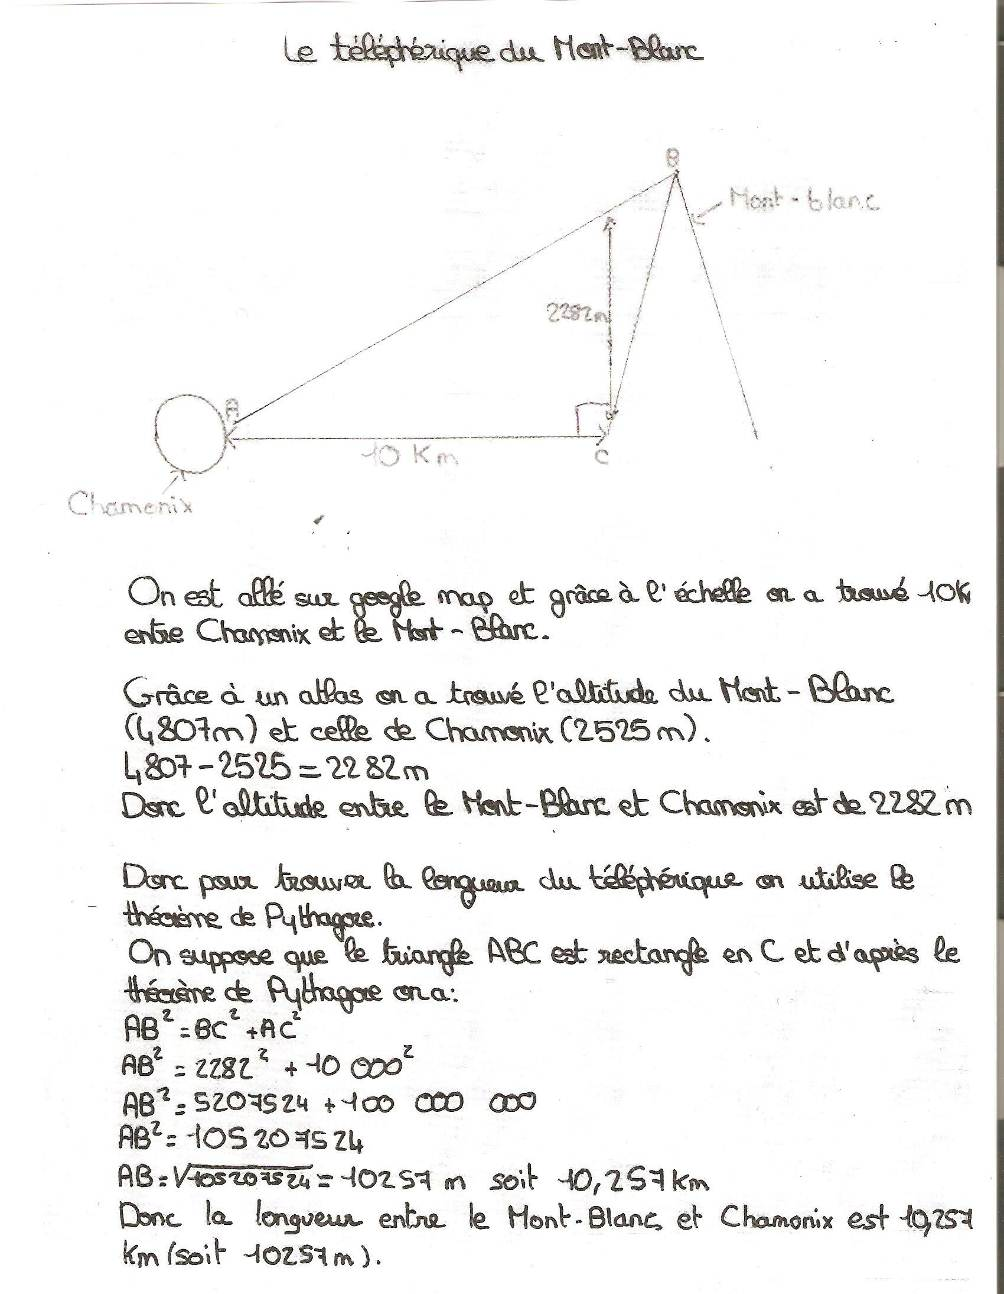 Le téléphérique du Mont-Blanc
B
Mont-blanc
2282m
A
10 Km
C
Chamonix
On est allé sur google map et grâce à l'échelle on a trouvé 10K
entre Chamonix et le Mont-Blanc.
Grâce à un atlas on a trouvé l'altitude du Mont-Blanc
(4807m) et celle de Chamonix (2525m).
4807-2525=2282m
Donc l'altitude entre le Mont-Blanc et Chamonix est de 2282m
Donc pour trouver la longueur du téléphérique on utilise le
théorème de Pythagore.
On suppose que le triangle ABC est rectangle en C et d'après le
théorème de Pythagore on a:
AB²=BC²+AC²
AB²=2282²+10 000²
AB²=5207524+100 000 000
AB²=105207524
AB=√105207524=10257 m soit 10,257km
Donc la longueur entre le Mont-Blanc et Chamonix est 10,257
Km (soit 10257m).